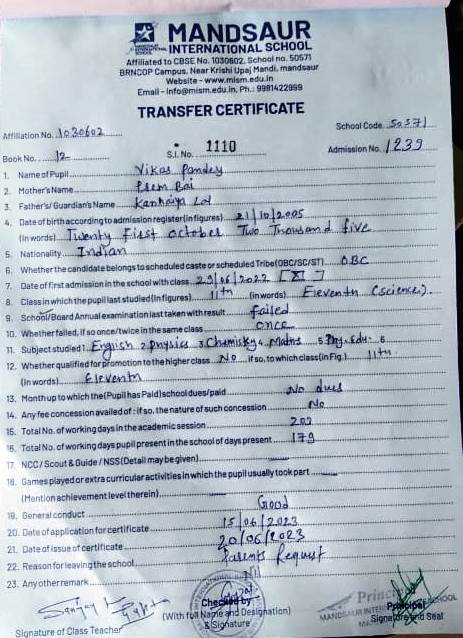 MANDSAUR
INTERNATIONAL SCHOOL
Affiliated to CBSE No. 1030602, School no. 50571
BRNCOP Campus, Near Krishi Upaj Mandi, mandsaur
Website - www.mism.edu.in
Email - Info@mism.edu.in, Ph.: 9981422999
TRANSFER CERTIFICATE
Affiliation No. 1030602 School Code. 50571
Book No. 12 S.I. No. 1110 Admission No. 1239
1. Name of Pupil Vikas Pandey
2. Mother's Name Prem Bai
3. Father's/ Guardian's Name Kanhaiya Lal
4. Date of birth according to admission register (in figures) 21/10/2005
(In words) Twenty First October Two Thousand five
5. Nationality Indian
6. Whether the candidate belongs to scheduled caste or scheduled Tribe (OBC/SC/ST) OBC
7. Date of first admission in the school with class 29/06/2022 [XI]
8. Class in which the pupil last studied (In figures) 11th (in words) Eleventh (science).
9. School/Board Annual examination last taken with result failed
10. Whether failed, if so once/twice in the same class once
11. Subject studied 1. English 2 Physics 3 Chemistry 4. Maths 5 Phy. Edu. 6
12. Whether qualified for promotion to the higher class No if so, to which class (in Fig.) 11th
(In words) Eleventh
13. Month up to which the (Pupil has Paid) school dues/paid No dues
14. Any fee concession availed of : if so, the nature of such concession No
15. Total No. of working days in the academic session 202
16. Total No. of working days pupil present in the school of days present 179
17. NCC / Scout & Guide / NSS (Detail may be given)
18. Games played or extra curricular activities in which the pupil usually took part
(Mention achievement level therein)
19. General conduct Good
20. Date of application for certificate 15/06/2023
21. Date of issue of certificate 20/06/2023
22. Reason for leaving the school Parents Request
23. Any other remark Nil
Checked by Principal
Signature of Class Teacher (With full Name and Designation) Signature and Seal
& Signature